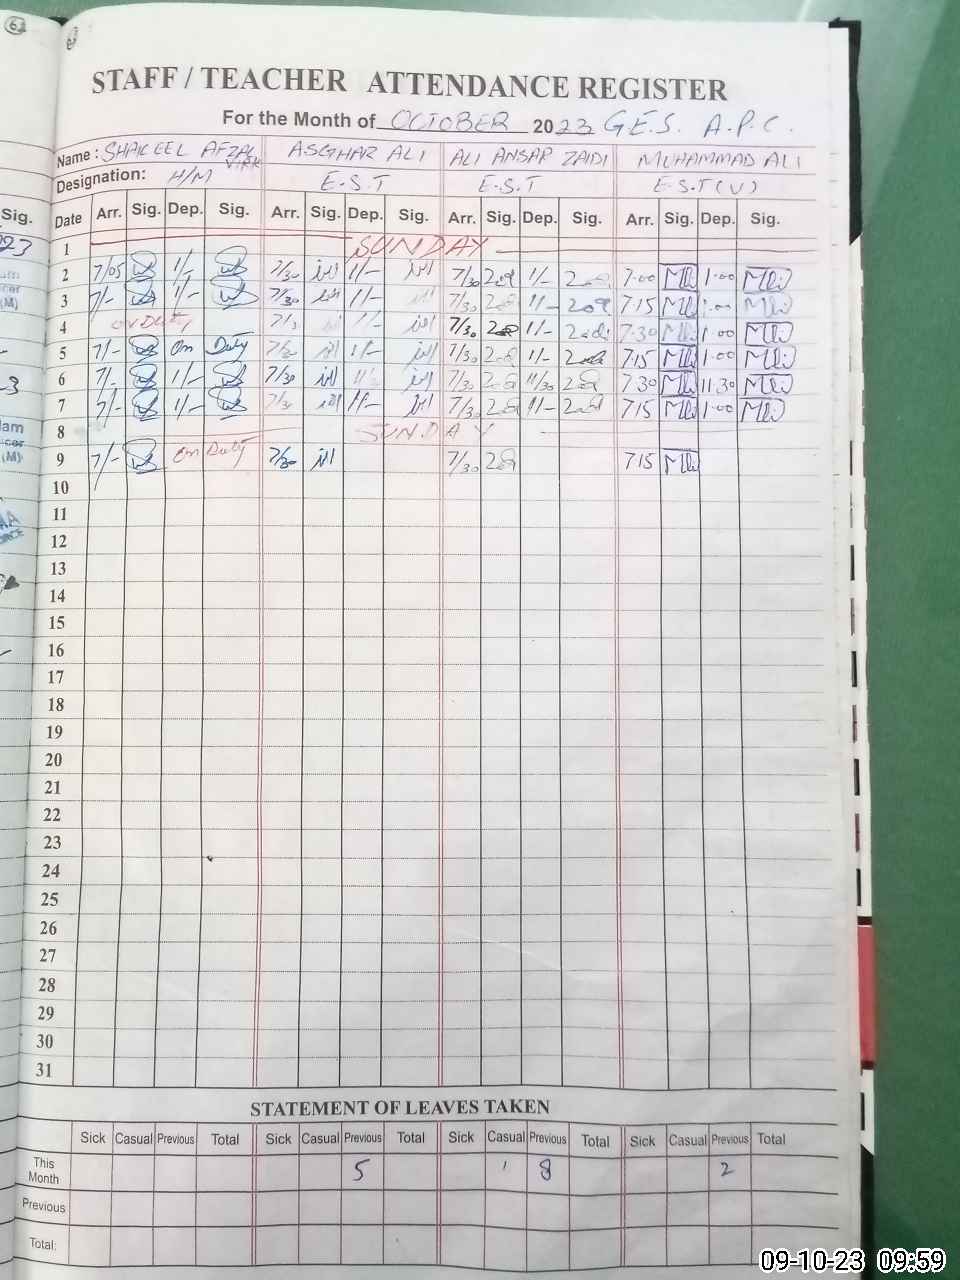 STAFF / TEACHER ATTENDANCE REGISTER
For the Month of OCTOBER 2023 G.E.S. A.P.C.
Name : SHAKEEL AFZAL VIRK ASGHAR ALI ALI ANSAR ZAIDI MUHAMMAD ALI
Designation: H/M E.S.T E.S.T E.S.T (U)
Sig. Date Arr. Sig. Dep. Sig. Arr. Sig. Dep. Sig. Arr. Sig. Dep. Sig. Arr. Sig. Dep. Sig.
1 SUNDAY
2 7/05 1/- 7/30 1/- 7/30 1/- 7.00 1.00
3 7/- 1/- 7/30 1/- 7/30 1/- 7.15 1.00
4 on Duty 1/- 7/30 1/- 7.30 1.00
5 7/- On Duty 1/- 7/30 1/- 7.15 1.00
6 7/- 1/- 7/30 7/30 11/30 7.30 11.30
7 7/- 1/- 1/- 7/30 1/- 7.15 1.00
8 SUNDAY
9 7/- On Duty 7/30 7/30 7.15
10
11
12
13
14
15
16
17
18
19
20
21
22
23
24
25
26
27
28
29
30
31
STATEMENT OF LEAVES TAKEN
Sick Casual Previous Total Sick Casual Previous Total Sick Casual Previous Total Sick Casual Previous Total
This Month 5 8 2
Previous
Total:
09-10-23 09:59